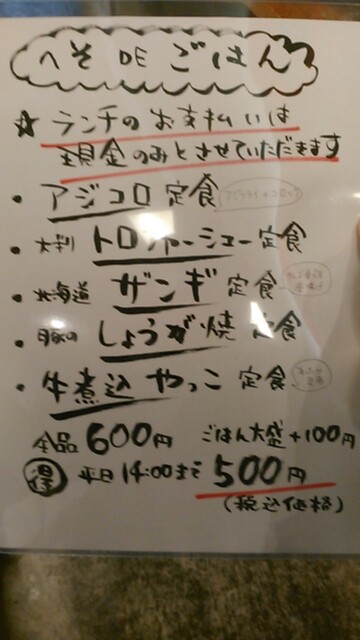 へそ DE ごはん
☆ ランチのお支払いは
現金のみとさせていただきます
・アジコロ定食 (アジフライ+コロッケ)
・大判 トロシャーシュー定食
・北海道 ザンギ 定食
・豚の しょうが焼 定食
・牛煮込 やっこ 定食
全品 600円 ごはん大盛+100円
得 平日 14:00まで 500円
(税込価格)